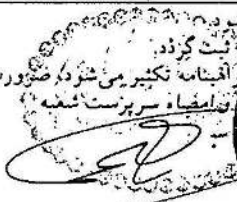 ثبت گردد.
تکثیر می‌شود، ضرور
و امضاء سرپرست شعبه
ب